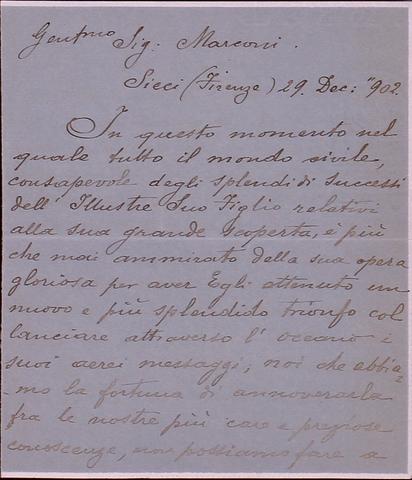 Gentmo Sig. Marconi.
Sieci (Firenze) 29. Dec: "902.
In questo momento nel
quale tutto il mondo civile,
consapevole degli splendidi successi
dell' Illustre Suo Figlio relativi
alla sua grande scoperta, è più
che mai ammirato della sua opera
gloriosa per aver Egli ottenuto un
nuovo e più splendido trionfo col
lanciare attraverso l' oceano i
suoi aerei messaggi; noi che abbia=
=mo la fortuna di annoverarla
fra le nostre più care e preziose
conoscenze, non possiamo fare a